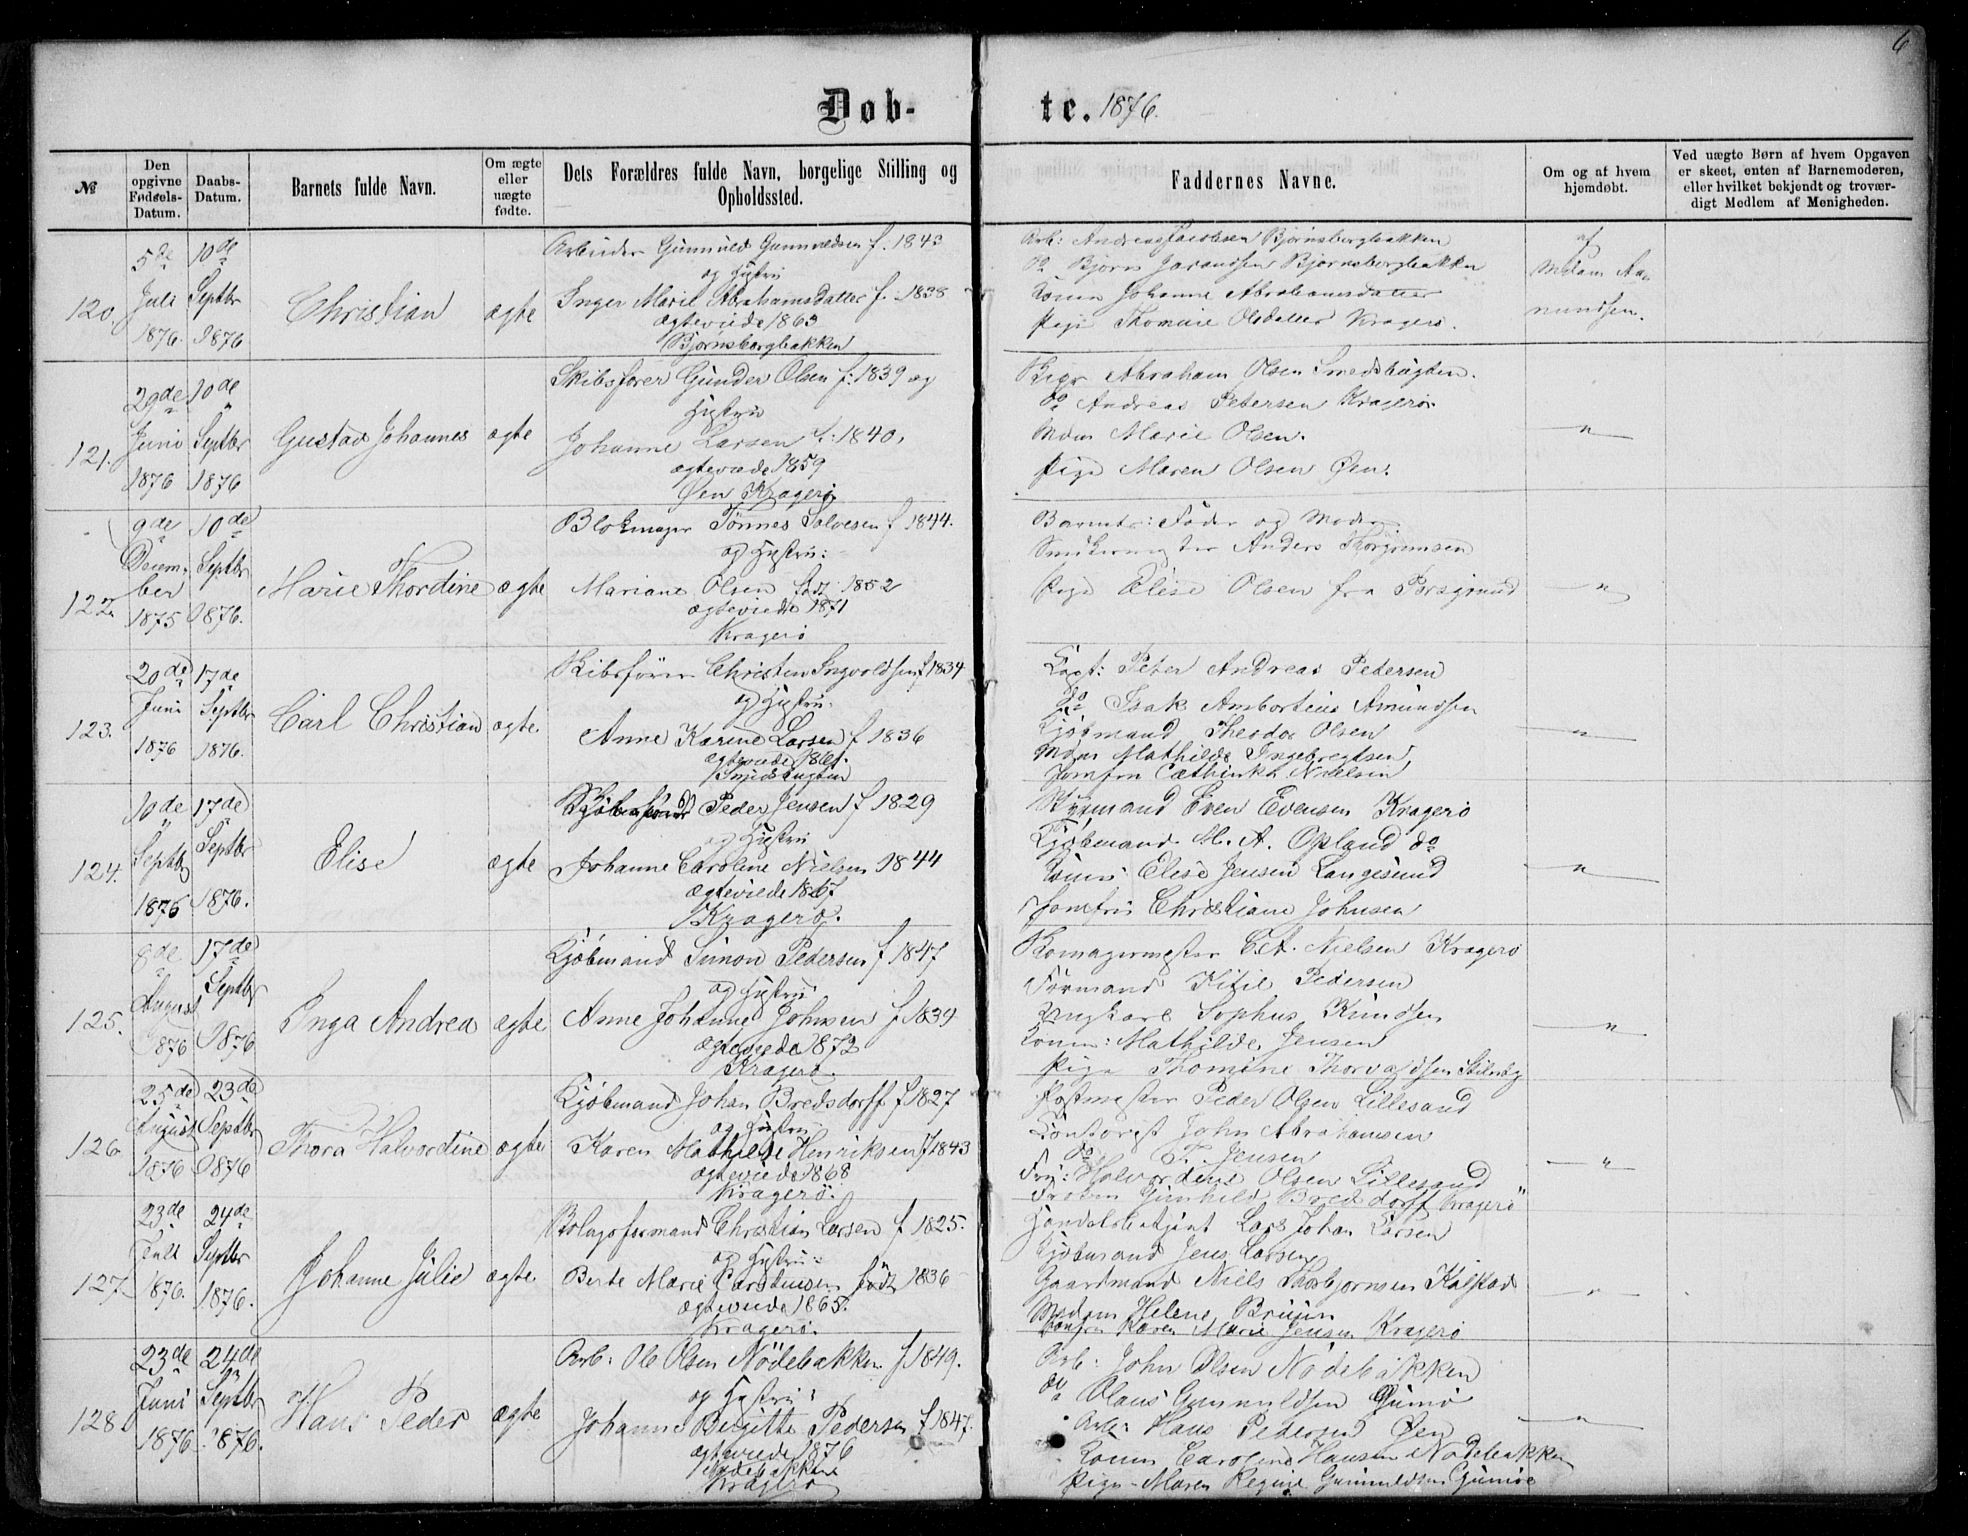 6
Døb-
te. 1876.
№
Den opgivne Fødsels-Datum.
Daabs-Datum.
Barnets fulde Navn.
Om ægte eller uægte fødte.
Dets Forældres fulde Navn, borgelige Stilling og Opholdssted.
Faddernes Navne.
Om og af hvem hjemdøbt.
Ved uægte Børn af hvem Opgaven er skeet, enten af Barnemoderen, eller hvilket bekjendt og troværdigt Medlem af Menigheden.
120
5de Juli 1876.
10de Septbr 1876
Christian
ægte
Arbeider Gunnuld Gunnuldsen f. 1843
og Hustru
Inger Marie Abrahamsdatter f. 1838
ægteviede 1863
Bjørnsbergbakken
Arb: Andreas Jacobsen Bjørnsbergbakken
do Bjørn Bjørnsbergbakken
Konen Johanne Abrahamsdatter
Pige Thomine Olsdatter Kragerø.
af
Madam Aamundsen.
121.
29de Juni 1876
10de Septbr 1876
Gustav Johannes
ægte
Skibsfører Gunder Olsen f: 1839 og
Hustru
Johanne Larsen f: 1840,
ægteviede 1859
Øen Kragerø
Abraham Olsen Smedsbugten.
do Andreas Petersen Kragerø
Mdm Marie Olsen.
Pige Maren Olsen Øen.
"
122
9de December 1875
10de Septbr 1876.
Marie Thordine
ægte
Blokmager Tønnes Salvesen f 1844.
og Hustru:
Mariane Olsen født 1852
ægteviede 1871
Kragerø
Barnets: Fader og Moder
Anders Thorgrimsen
Pige Elise Olsen fra Porsgrund
"
123.
20de Juni 1876
17de Septbr 1876.
Carl Christian
ægte
Skibsfører Christen Ingvoldsen f 1834
og Hustru.
Anne Karine Larsen f 1836
ægteviede
Smedsbugten
Capt: Peter Andreas Pedersen
do Isak Ambortius Amundsen
Kjøbmand Theodor Olsen
Mdm Mathilde Ingebregtsen
Jomfru Cathinka Nielsen
"
124.
10de Septbr 1876
17de Septbr 1876.
Elise
ægte
Peder Jensen f 1829
og Hustru
Johanne Caroline Nielsen 1844
ægteviede 1867
Kragerø.
Styrmand Even Evensen Kragerø
Kjøbmand M. A. Opland do
Konen Elise Jensen Langesund
Jomfru Christiane Johnsen
"
125.
8de August 1876
17de Septbr 1876
Inga Andrea
ægte
Kjøbmand Simon Pedersen f 1847
og Hustru
Anne Johanne Johnsen f 1839
ægteviede 1872
Kragerø.
Nielsen Kragerø
Formand Kitil Pedersen
Ungkarl Sophus Knudsen
Konen: Mathilde Jensen
Pige Thomine Thorvaldsen
"
126.
25de August 1876
23de Septbr 1876
Thora Halvordine
ægte
Kjøbmand Johan Bredsdorff f 1827
og Hustru
Karen Mathilde Henriksen f 1843
ægteviede 1868
Kragerø.
Postmester Peder Olsen Lillesand
Contorist John Abrahamsen
do T. Jensen
Fru: Halvordine Olsen Lillesand
Frøken Gunhild Bredsdorff Kragerø
"
127.
23de Juli 1876.
24de Septbr 1876.
Johanne Julie
ægte
Bolagsformand Christian Larsen f 1825.
og Hustru:
Berte Marie Carstensen født 1836
ægteviede 1865.
Kragerø.
Handelsbetjent Lars Johan Larsen
Kjøbmand Jens Larsen
Gaardmand Niels Thorbjørnsen Kalstad
Madam Helene Bruun
Jomfru Karen Marie Jensen Kragerø
"
128.
23de Juni 1876.
24de Septbr 1876.
Hans Peder
ægte
Arb: Ole Olsen Nødebakken f 1849.
og Hustru:
Johanne Birgitte Pedersen f 1847.
ægteviede 1876
Nødebakken
Kragerø
Arb: John Olsen Nødebakken
do Olaus Gunnuldsen Gumø
Arb: Hans Pedersen Øen
Konen Caroline Hansen Nødebakken
Pige - Maren Regine Gunnuldsen Gumøe
"